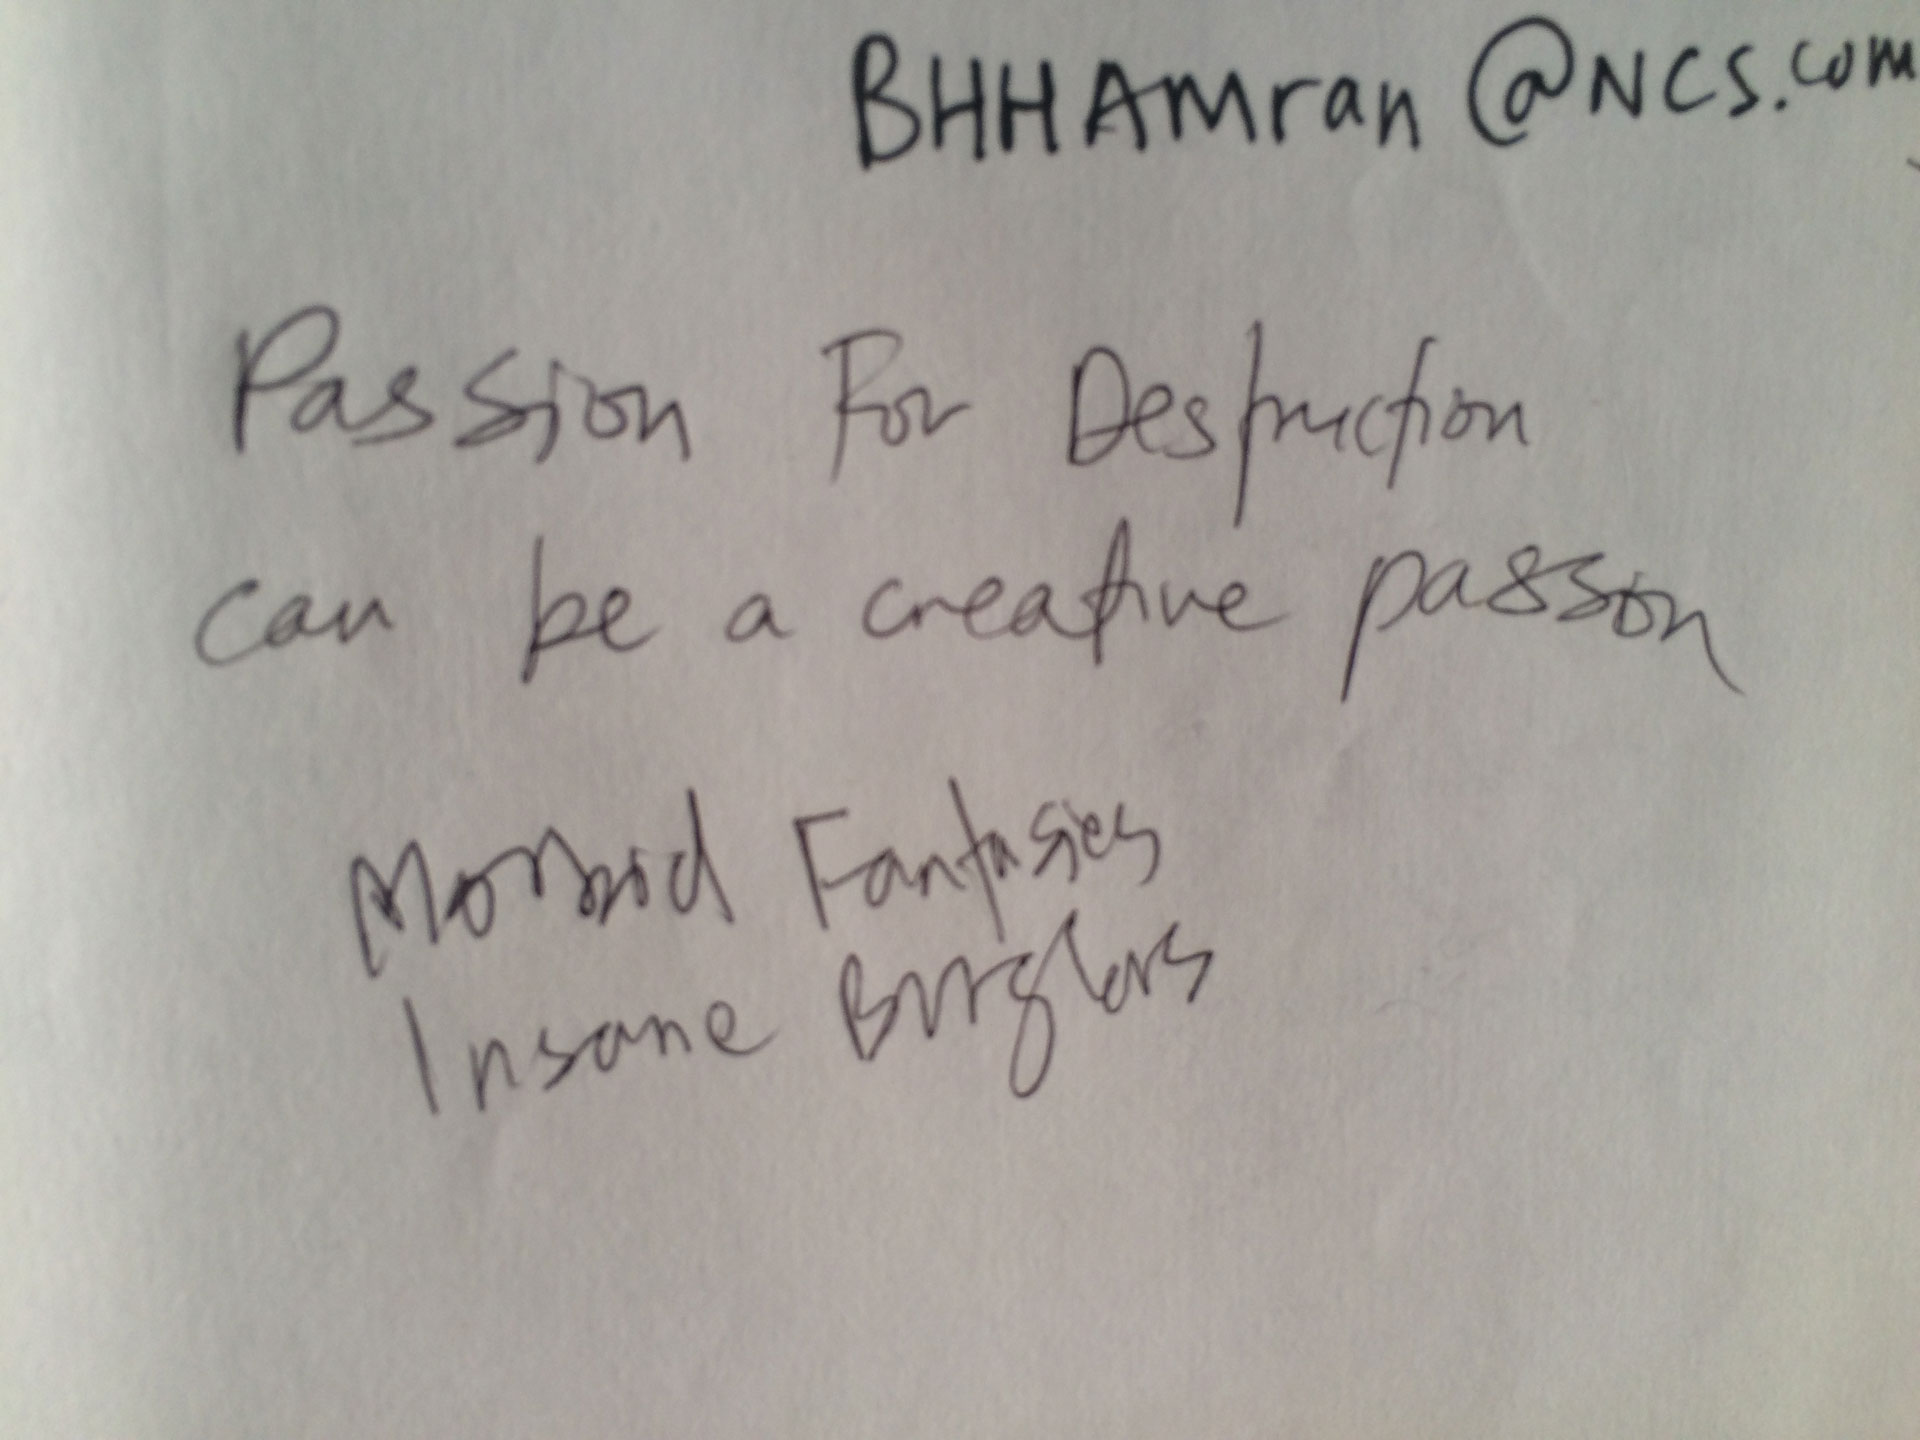 BHHAmran@NCS.com
Passion For Destruction
can be a creative passion
Morbid Fantasies
Insane Burglars